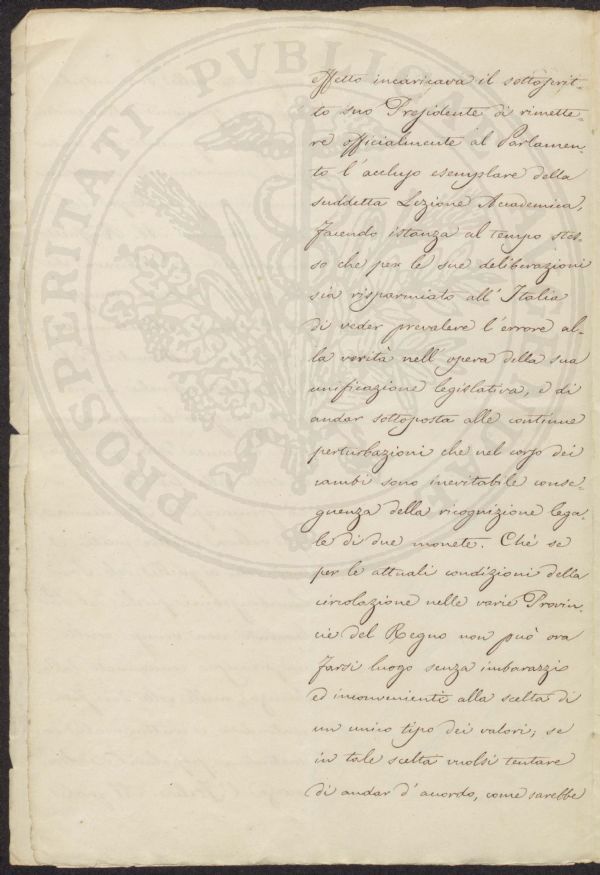 effetto incaricava il sottoscrit-
to suo Presidente di rimette-
re officialmente al Parlamen-
to l'accluso esemplare della
suddetta Lezione Accademica,
facendo istanza al tempo stes-
so che per le sue deliberazioni
sia risparmiato all'Italia
di veder prevalere l'errore al-
la verità nell'opera della sua
unificazione legislativa, e di
andar sottoposta alle continue
perturbazioni che nel corso dei
cambi sono inevitabile conse-
guenza della ricognizione lega-
le di due monete. Chè se
per le attuali condizioni della
circolazione nelle varie Provin-
cie del Regno non può ora
farsi luogo senza imbarazzi
ed inconvenienti alla scelta di
un unico tipo dei valori; se
in tale scelta vuolsi tentare
di andar d'accordo, come sarebbe
PROSPERITATI PVBLICAE